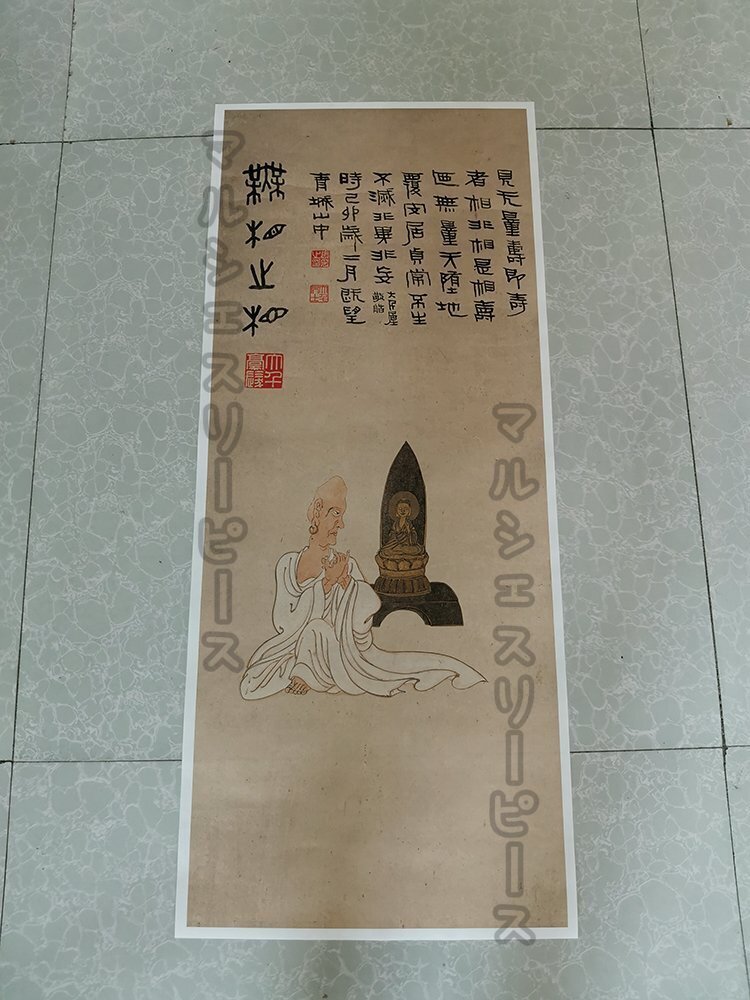 見无量壽即壽
者相非相是相
無量天墮地
覆安居貞常不生
不滅非異非妄
時己卯歲二月既望
青城山中
無相之相
マルシェスリーピース
マルシェスリーピース